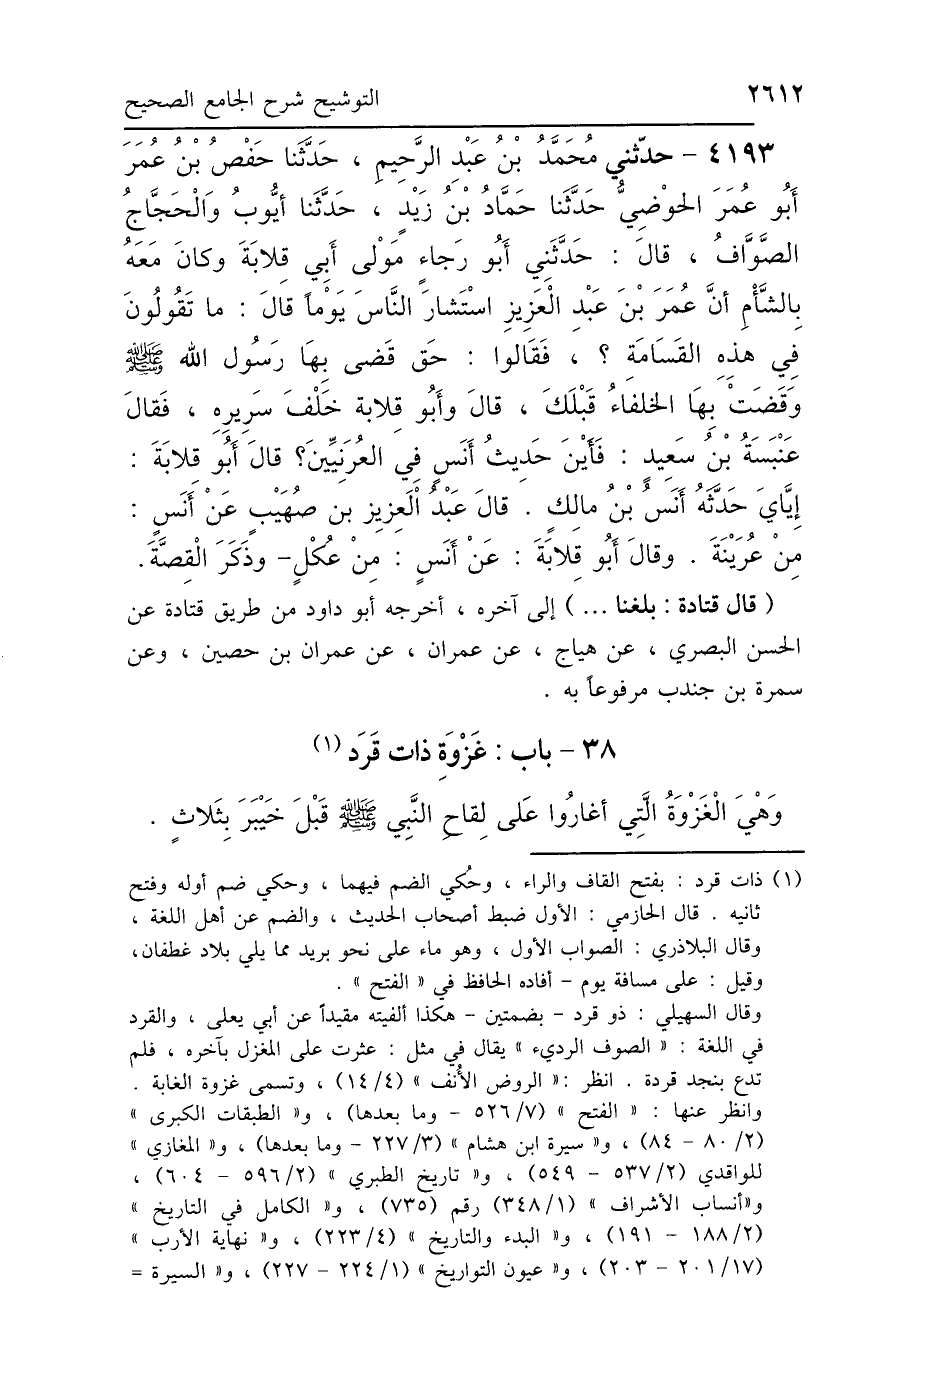 ٢٦١٢ التوشيح شرح الجامع الصحيح
٤١٩٣ - حدّثني مُحَمَّدُ بْنُ عَبْدِ الرَّحِيمِ ، حَدَّثَنا حَفْصُ بْنُ عُمَرَ
أَبُو عُمَرَ الحَوْضِيُّ حَدَّثَنا حَمَّادُ بْنُ زَيْدٍ ، حَدَّثَنا أيُّوبُ وَالْحَجاجُ
الصَّوَّافُ ، قالَ : حَدَّثَنِي أَبُو رَجاءٍ مَوْلى أَبِي قِلابَةَ وكانَ مَعَهُ
بِالشَّأْمِ أنَّ عُمَرَ بْنَ عَبْدِ الْعَزِيزِ اسْتَشارَ النَّاسَ يَوْماً قالَ : ما تَقُولُونَ
فِي هذِهِ القَسَامَةِ ؟ ، فَقَالُوا : حَق قَضى بِهَا رَسُول الله ﷺ
وَقَضَتْ بِهَا الخلفاءُ قَبْلَكَ ، قالَ وأَبُو قلابة خَلْفَ سَرِيرِهِ ، فَقالَ
عَنْبَسَةُ بْنُ سَعِيدٍ : فَأَيْنَ حَدِيثُ أَنَسٍ فِي العُرَنِيِّينَ؟ قالَ أَبُو قِلابَةَ :
إِيَّايَ حَدَّثَهُ أَنَسُ بْنُ مالِكٍ . قالَ عَبْدُ الْعَزِيزِ بن صُهَيْبٍ عَنْ أَنَسٍ :
مِنْ عُرَيْنَةَ . وقالَ أَبُو قِلابَةَ : عَنْ أَنَسٍ : مِنْ عُكْلٍ - وذَكَرَ الْقِصَّةَ.
( قال قتادة : بلغنا ... ) إلى آخره ، أخرجه أبو داود من طريق قتادة عن
الحسن البصري ، عن هياج ، عن عمران ، عن عمران بن حصين ، وعن
سمرة بن جندب مرفوعاً به .
٣٨ - باب : غَزْوَةِ ذات قَرَد (١)
وَهْيَ الْغَزْوَةُ الَّتِي أغارُوا عَلَى لِقاحِ النَّبِي ﷺ قَبْلَ خَيْبَرَ بِثَلاثٍ .
(١) ذات قرد : بفتح القاف والراء ، وحُكي الضم فيهما ، وحكي ضم أوله وفتح
ثانيه . قال الحازمي : الأول ضبط أصحاب الحديث ، والضم عن أهل اللغة ،
وقال البلاذري : الصواب الأول ، وهو ماء على نحو بريد مما يلي بلاد غطفان،
وقيل : على مسافة يوم - أفاده الحافظ في « الفتح » .
وقال السهيلي : ذو قرد - بضمتين - هكذا ألفيته مقيداً عن أبي يعلى ، والقرد
في اللغة : « الصوف الرديء » يقال في مثل : عثرت على المغزل بآخره ، فلم
تدع بنجد قردة . انظر :« الروض الأُنف » (١٤/٤) ، وتسمى غزوة الغابة .
وانظر عنها : « الفتح » (٥٢٦/٧ - وما بعدها) ، و« الطبقات الكبرى »
(٨٠/٢ - ٨٤) ، و« سيرة ابن هشام » (٢٢٧/٣ - وما بعدها) ، و« المغازي »
للواقدي (٥٣٧/٢ - ٥٤٩) ، و« تاريخ الطبري » (٥٩٦/٢ - ٦٠٤) ،
و«أنساب الأشراف » (٣٤٨/١) رقم (٧٣٥) ، و« الكامل في التاريخ »
(١٨٨/٢ - ١٩١) ، و« البدء والتاريخ » (٢٢٣/٤) ، و« نهاية الأرب »
(٢٠١/١٧ - ٢٠٣) ، و« عيون التواريخ » (٢٢٤/١ - ٢٢٧) ، و« السيرة =